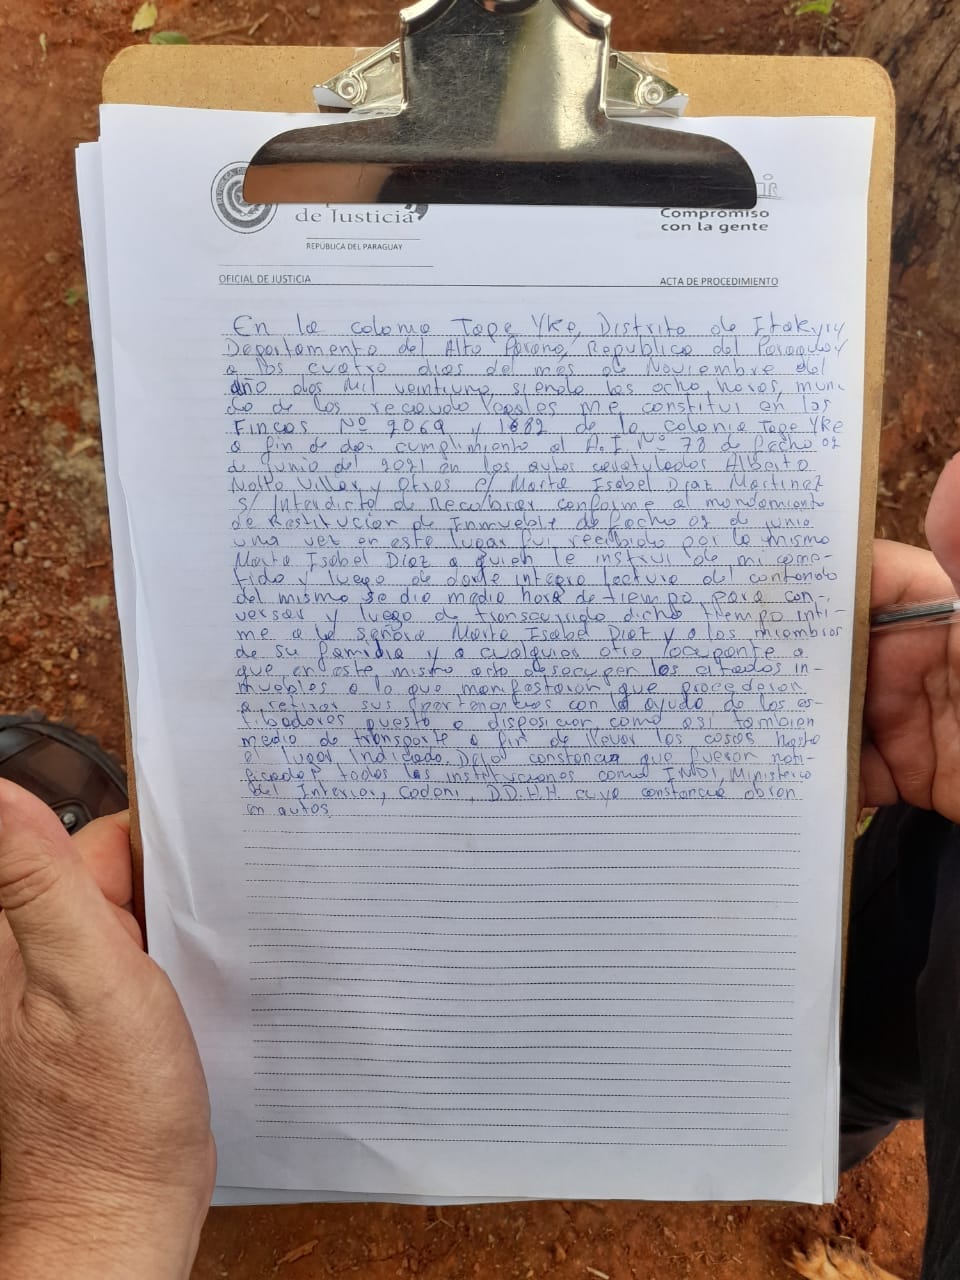 de Justicia
REPÚBLICA DEL PARAGUAY
Compromiso
con la gente
OFICIAL DE JUSTICIA
ACTA DE PROCEDIMIENTO
En la colonia Tape Yke, Distrito de Itakyry
Departamento del Alto Parana, Republica del Paraguay
a los cuatro dias del mes de Noviembre del
año dos mil veintiuno, siendo las ocho horas, muni-
do de los recaudo legales me constitui en las
Fincas Nº 2069 y 1882 de la colonia Tape Yke
a fin de dar cumplimiento al A.I. Nº 78 de fecha 02
de junio del 2021 en los autos caratulados Alberto
Villar y Otros c/ Marta Isabel Diaz Martinez
s/ Interdicto de Recobrar conforme al mandamiento
de Restitución de Inmueble de fecha 02 de junio
una vez en este lugar fui recibido por la misma
Marta Isabel Diaz a quien le instrui de mi come-
tido y luego de darle integra lectura del contenido
del mismo se dio media hora de tiempo para con-
versar y luego de transcurrido dicho tiempo inti-
me a la señora Marta Isabel Diaz y a los miembros
de su familia y a cualquier otro ocupante a
que en este mismo acto desocupen los citados in-
muebles a lo que manifestaron que procederan
a retirar sus pertenencias con la ayuda de los es-
tibadores puesto a disposicion como asi tambien
medio de transporte a fin de llevar las cosas hasta
el lugar indicado. Dejo constancia que fueron noti-
ficados todos las instituciones como INDI, Ministerio
del Interior, Codeni, D.D.H.H. cuya constancia obran
en autos.